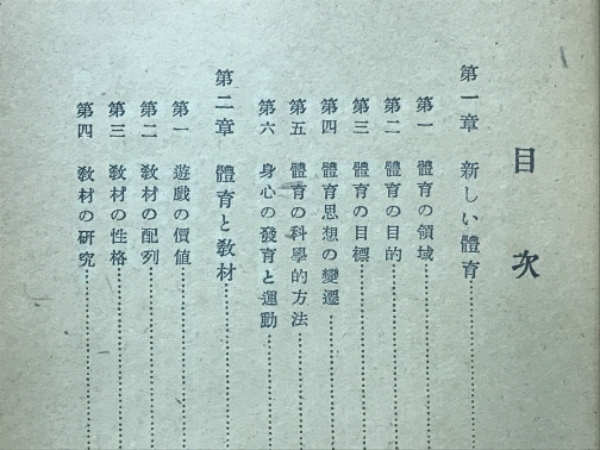 目次
第一章 新しい體育
第一 體育の領域
第二 體育の目的
第三 體育の目標
第四 體育思想の變遷
第五 體育の科學的方法
第六 身心の發育と運動
第二章 體育と敎材
第一 遊戲の價値
第二 敎材の配列
第三 敎材の性格
第四 敎材の研究